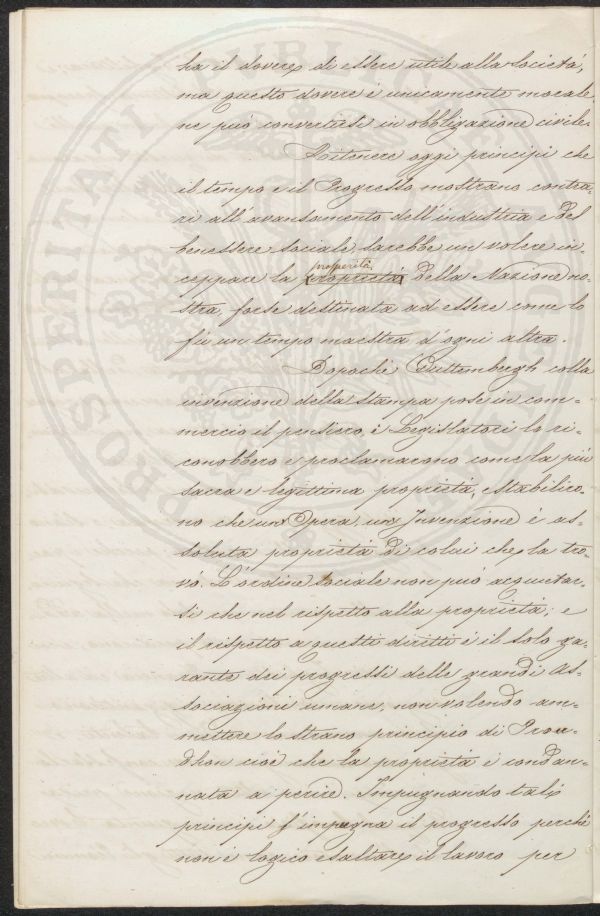 ha il dovere di essere utile alla società,
ma questo dovere è unicamente morale,
ne può convertirsi in obbligazione civile.
Ritenere oggi principi che
il tempo e il Progresso mostrano contra-
ri all'avansamento dell'industria e del
benessere sociale sarebbe un volere in-
prosperità
ceppare la proprietà della Nazione no-
stra, forse destinata ad essere come lo
fù un tempo maestra d'ogni altra.
Dopochè Guttembergh colla
invenzione della stampa pose in com-
mercio il pensiero, i Legislatori lo ri-
conobbero e proclamarono come la più
sacra e legittima proprietà, e stabiliro-
no che un Opera, una Invenzione è as-
soluta proprietà di colui che la tro-
vò. L'ordine sociale non può acquetar-
si che nel rispetto alla proprietà; e
il rispetto a questi diritti è il solo ga-
rante dei progressi delle grandi As-
sociazioni umane, non volendo am-
mettere lo strano principio di Prou-
dhon cioè che la proprietà è condan-
nata a perire. Impugnando tali
principi s'impugna il progresso perchè
non è logico esaltare il lavoro per
PROSPERITATI PUBLICAE AUGENDAE